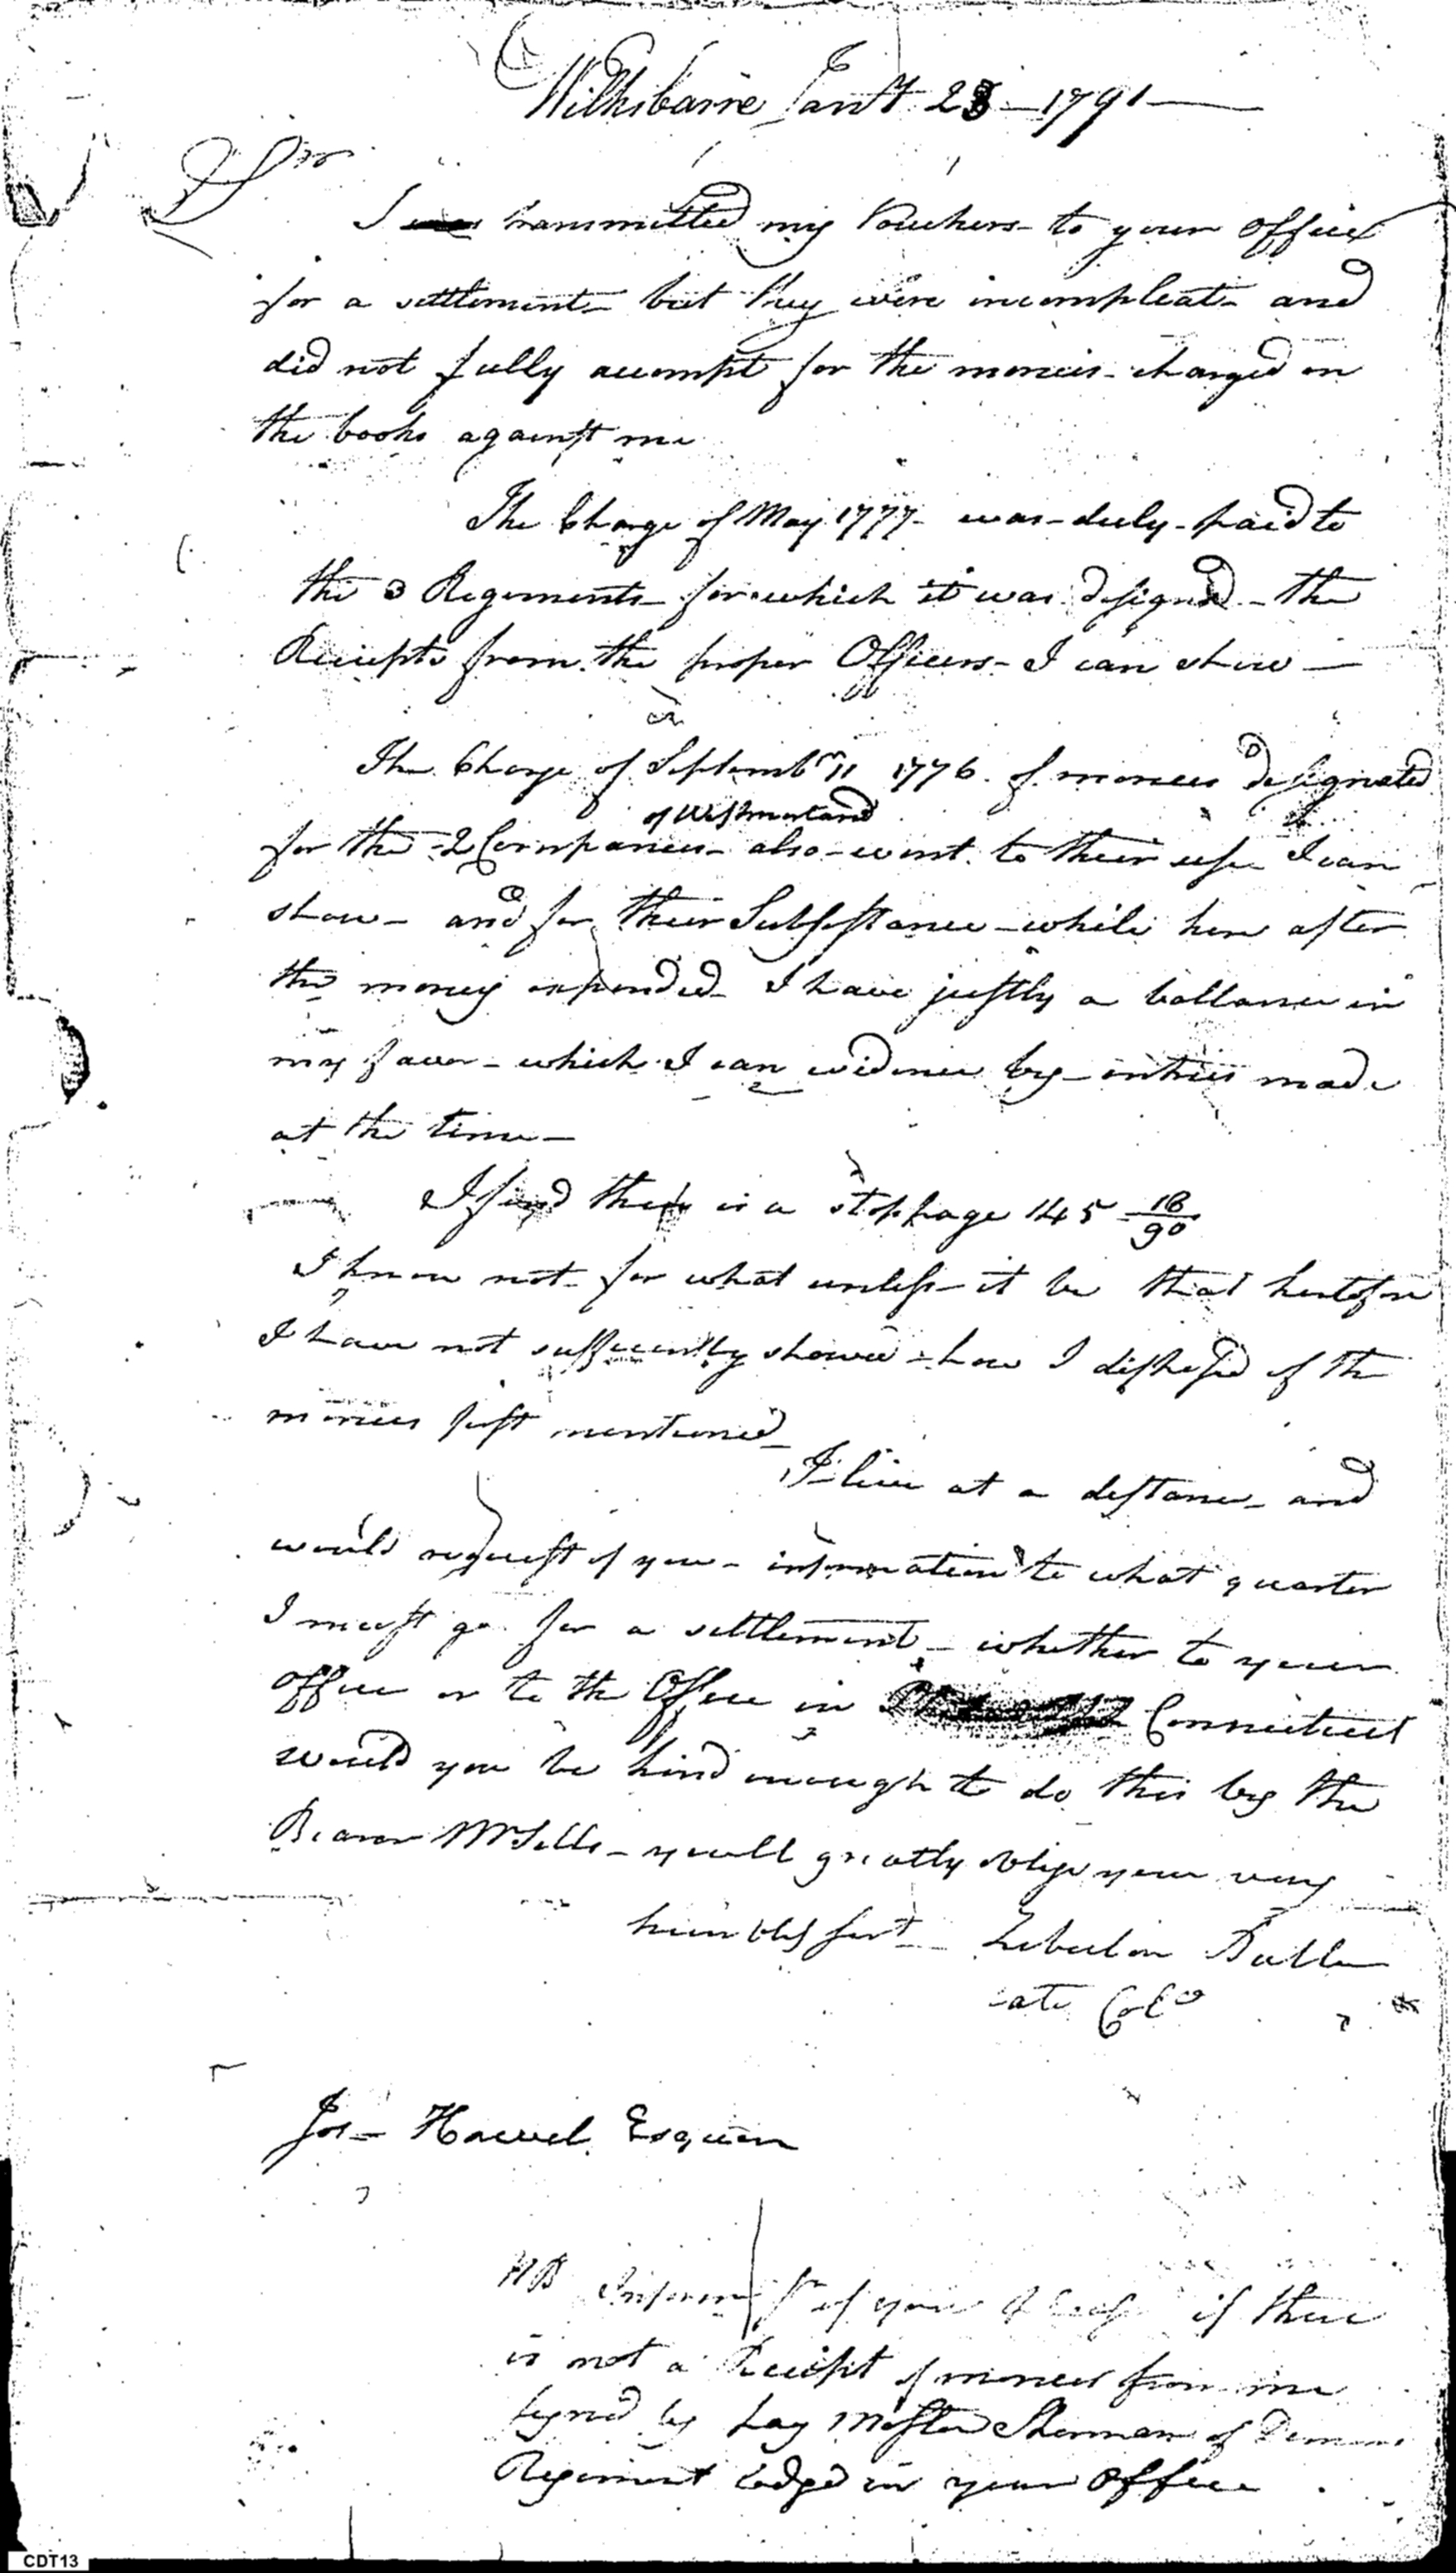 Wilksbarre Jany 23 – 1791 —
Sir
I transmitted my Vouchers to your Office
for a settlement – but they were incompleat – and
did not fully accompt for the moneies – charged on
the books against me
The Charge of May 1777 – was – duly – paid to
the 3 Regements – for which it was designed – the
Reciepts from the proper Officers – I can shew —
The Charge of Septembr 11 1776. of moneies designated
of Westmorland
for the 2 Companies – also – went to their use I can
show – and for their Subsistance – while here after
the money expended – I have justly a ballance in
my favor – which I can evidence by – entries made
at the time –
I find there is a stoppage 145 18/90
I know not – for what unless – it be that heretofore
I have not sufficently shown – how I disposed of the
moneies just mentioned –
I live at a distance – and
would request of you – information to what quarter
I must go for a settlement – whether to your
Office or to the Office in Connecticut
would you be kind enough to do this by the
Bearer Mr Sills – youll greatly oblige your very
humble servt – Zebulon Butler
late Colo
Jos – Howel Esquire
NB of you if there
is not a Receipt of moneies from me
signed by Pay Master Sherman of
Regiment lodged in your Office
CDT13